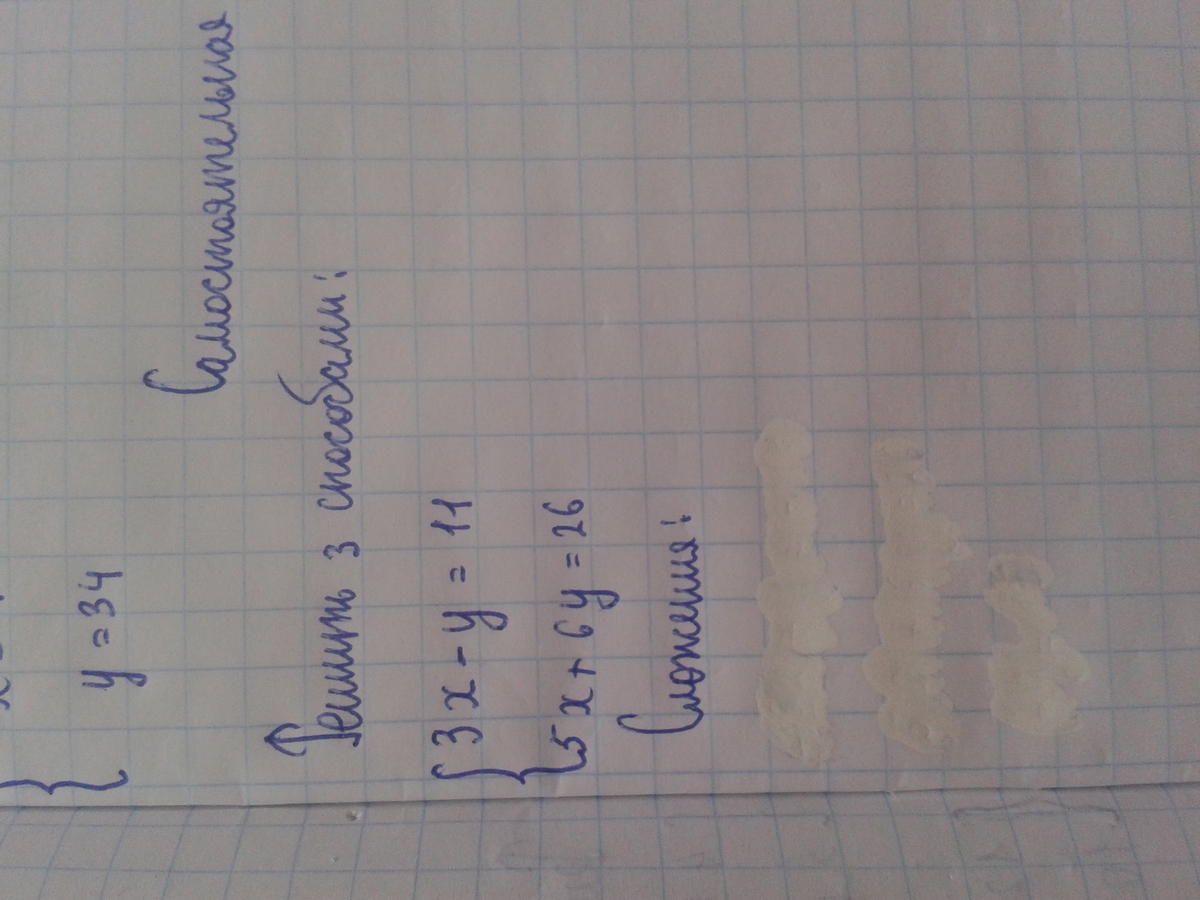 y = 34
Самостоятельная
Решить 3 способами:
3x - y = 11
5x + 6y = 26
Сложения: